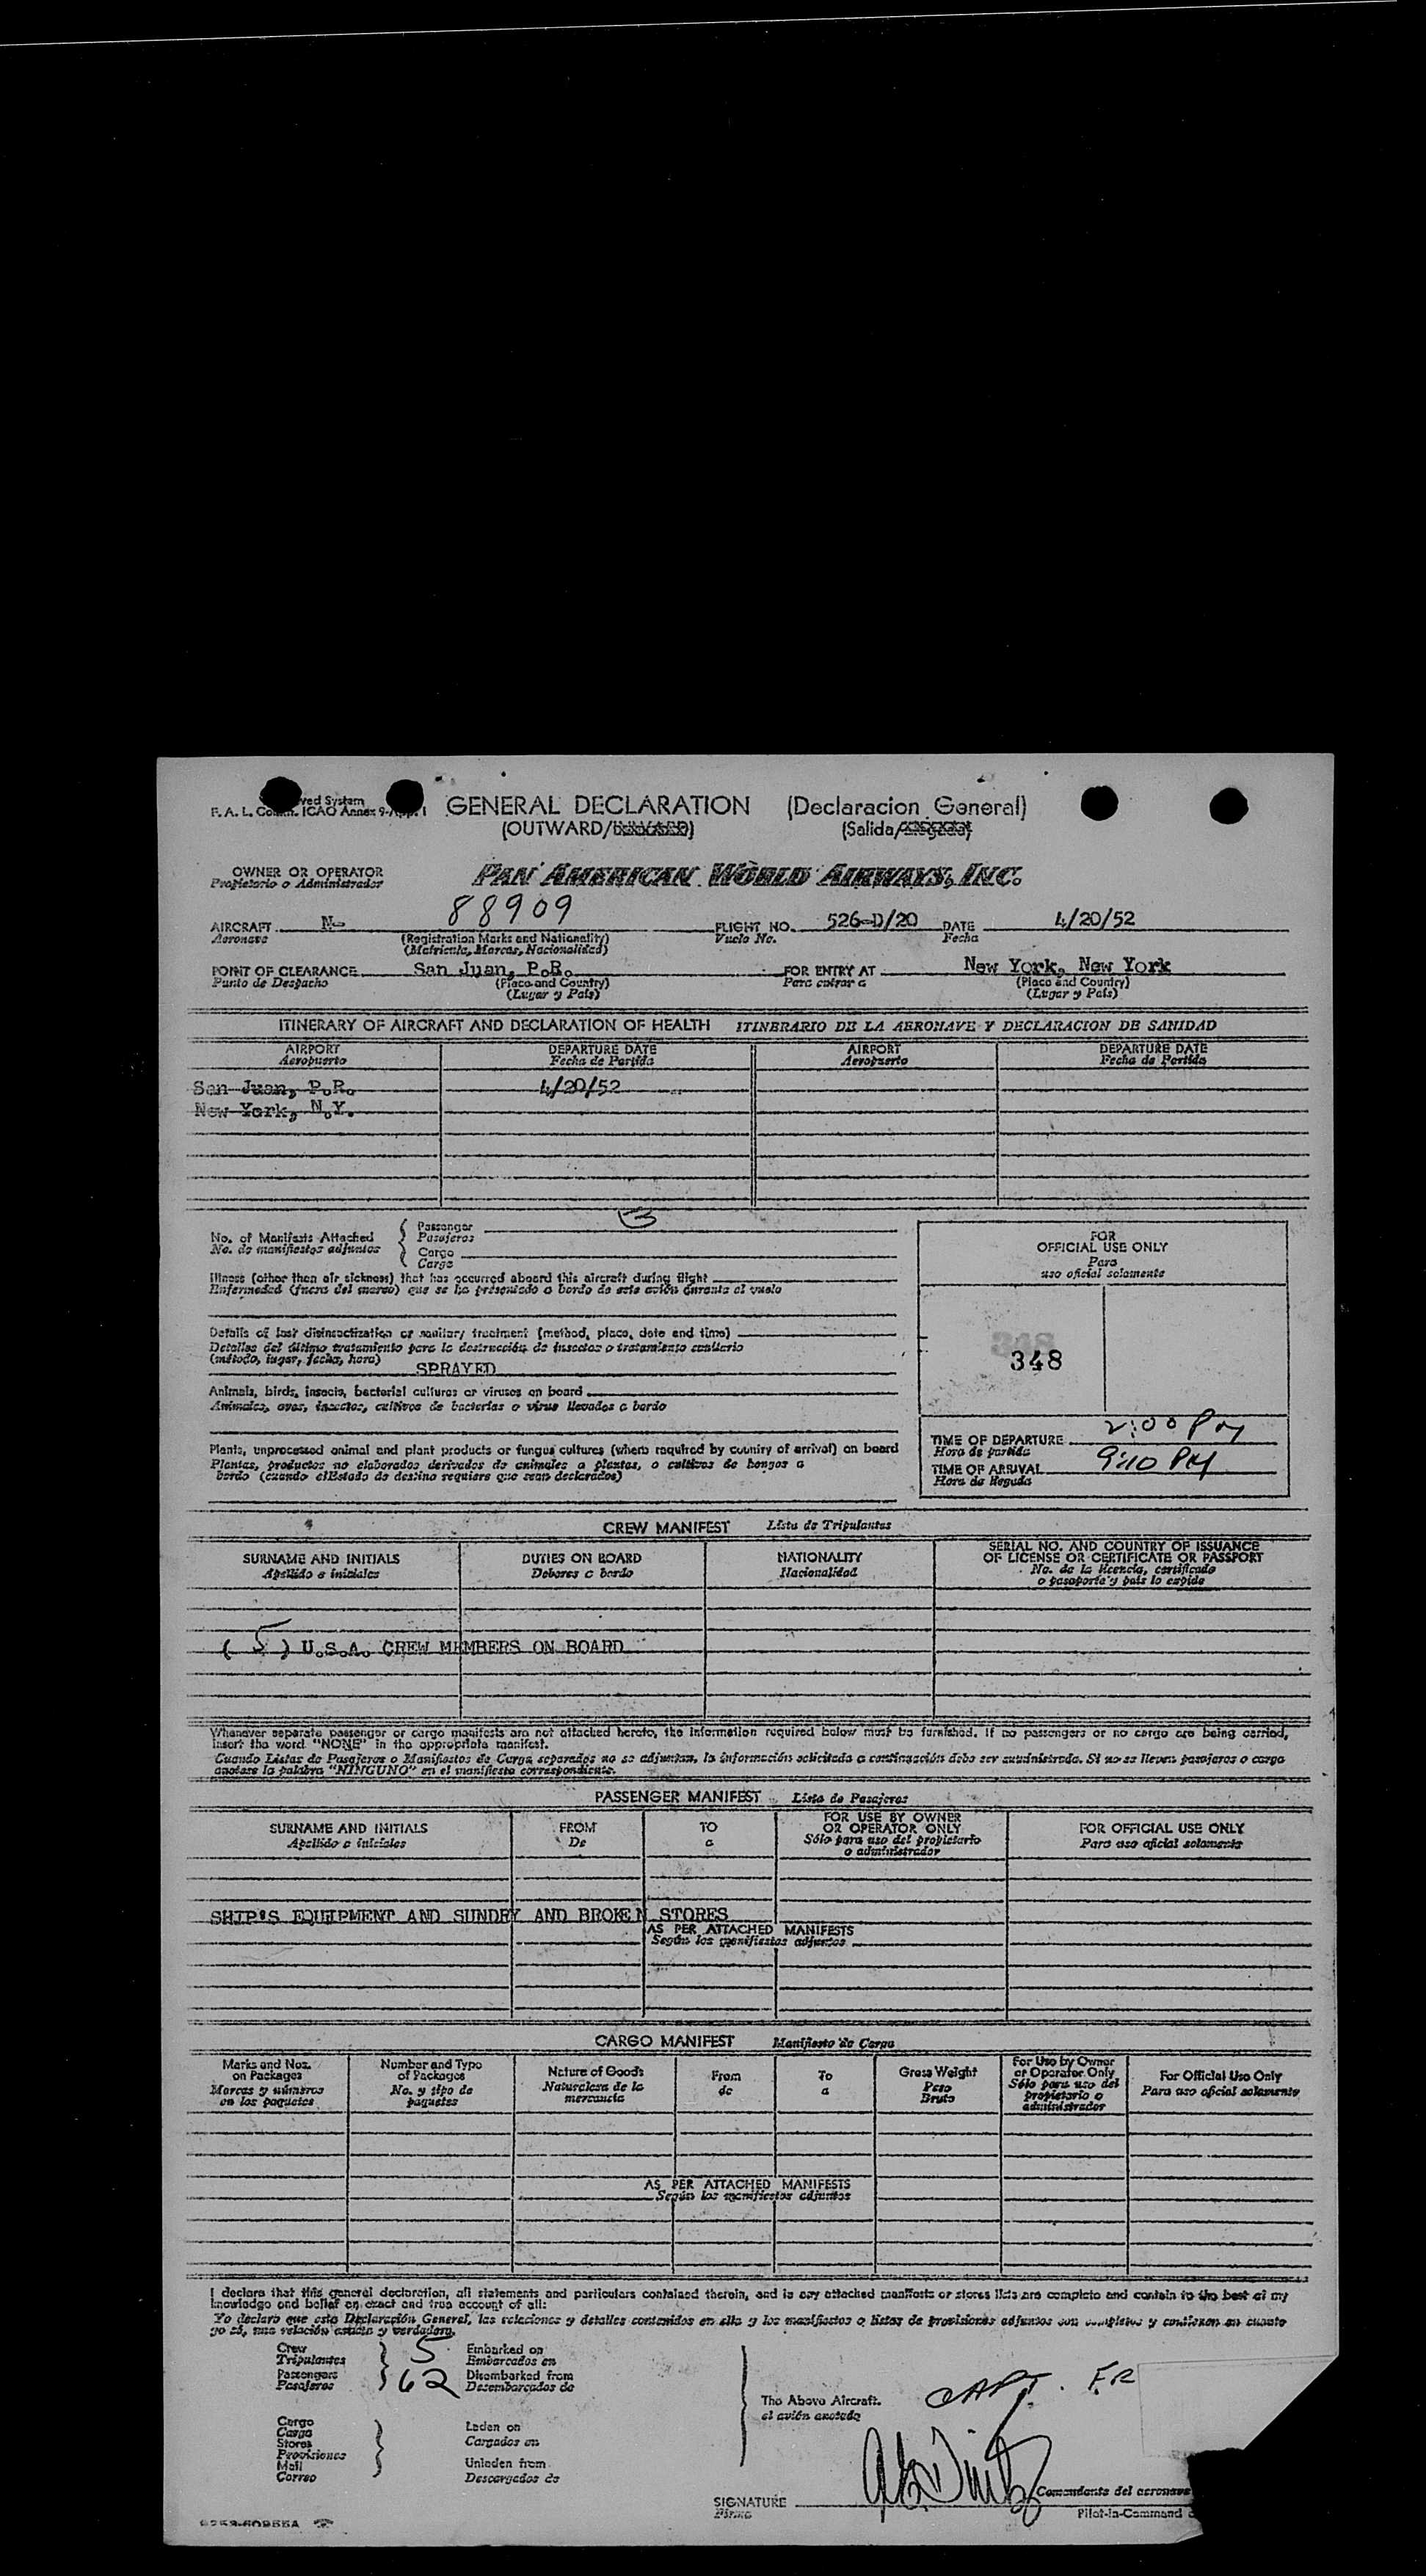 F. A. L. Comm. ICAO Annex 9-App. 1
GENERAL DECLARATION (Declaracion General)
(OUTWARD/ (Salida/
OWNER OR OPERATOR
Propietario o Administrador
PAN AMERICAN WORLD AIRWAYS, INC.
AIRCRAFT N- 88909 FLIGHT NO. 526-D/20 DATE 4/20/52
Aeronave (Registration Marks and Nationality) Vuelo No. Fecha
(Matricula, Marcas, Nacionalidad)
POINT OF CLEARANCE San Juan, P.R. FOR ENTRY AT New York, New York
Punto de Despacho (Place and Country) Para entrar a (Place and Country)
(Lugar y País) (Lugar y País)
ITINERARY OF AIRCRAFT AND DECLARATION OF HEALTH ITINERARIO DE LA AERONAVE Y DECLARACION DE SANIDAD
AIRPORT DEPARTURE DATE AIRPORT DEPARTURE DATE
Aeropuerto Fecha de Partida Aeropuerto Fecha de Partida
San Juan, P.R. 4/20/52
New York, N.Y.
No. of Manifests Attached Passenger 3
No. de manifiestos adjuntos Pasajeros
Cargo
Carga
Illness (other than air sickness) that has occurred aboard this aircraft during flight
Enfermedad (fuera del mareo) que se ha presentado a bordo de este avión durante el vuelo
Details of last disinsectization or sanitary treatment (method, place, date and time)
Detalles del último tratamiento para la destrucción de insectos o tratamiento sanitario
(método, lugar, fecha, hora) SPRAYED
Animals, birds, insects, bacterial cultures or viruses on board
Animales, aves, insectos, cultivos de bacterias o virus llevados a bordo
Plants, unprocessed animal and plant products or fungus cultures (where required by country of arrival) on board
Plantas, productos no elaborados derivados de animales o plantas, o cultivos de hongos a
bordo (cuando el Estado de destino requiera que sean declarados)
FOR
OFFICIAL USE ONLY
Para
uso oficial solamente
348
348
TIME OF DEPARTURE 2:00 PM
Hora de partida
TIME OF ARRIVAL 9:10 PM
Hora de llegada
CREW MANIFEST Lista de Tripulantes
SURNAME AND INITIALS DUTIES ON BOARD NATIONALITY SERIAL NO. AND COUNTRY OF ISSUANCE
OF LICENSE OR CERTIFICATE OR PASSPORT
Apellido e iniciales Deberes a bordo Nacionalidad No. de la licencia, certificado
o pasaporte y país lo expide
( 5 ) U.S.A. CREW MEMBERS ON BOARD
Whenever separate passenger or cargo manifests are not attached hereto, the information required below must be furnished. If no passengers or no cargo are being carried,
insert the word "NONE" in the appropriate manifest.
Cuando Listas de Pasajeros o Manifiestos de Carga separados no se adjuntan, la información solicitada a continuación debe ser suministrada. Si no se llevan pasajeros o carga
anótese la palabra "NINGUNO" en el manifiesto correspondiente.
PASSENGER MANIFEST Lista de Pasajeros
SURNAME AND INITIALS FROM TO FOR USE BY OWNER
OR OPERATOR ONLY FOR OFFICIAL USE ONLY
Apellido e iniciales De a Sólo para uso del propietario
o administrador Para uso oficial solamente
SHIP'S EQUIPMENT AND SUNDRY AND BROKEN STORES
AS PER ATTACHED MANIFESTS
Según los manifiestos adjuntos
CARGO MANIFEST Manifiesto de Carga
Marks and Nos.
on Packages
Marcas y números
en los paquetes
Number and Type
of Packages
No. y tipo de
paquetes
Nature of Goods
Naturaleza de la
mercancia
From
de
To
a
Gross Weight
Peso
Bruto
For Use by Owner
or Operator Only
Sólo para uso del
propietario o
administrador
For Official Use Only
Para uso oficial solamente
AS PER ATTACHED MANIFESTS
Según los manifiestos adjuntos
I declare that this general declaration, all statements and particulars contained therein, and in any attached manifests or stores lists are complete and contain to the best of my
knowledge and belief an exact and true account of all:
Yo declaro que esta Declaración General, las relaciones y detalles contenidos en ella y los manifiestos o listas de provisiones adjuntos son completos y contienen en cuanto
yo sé, una relación exacta y verdadera.
Crew 5 Embarked on
Tripulantes Embarcados en
Passengers 62 Disembarked from
Pasajeros Desembarcados de
Cargo
Carga
Stores
Provisiones
Mail
Correo
Laden on
Cargados en
Unladen from
Descargados de
The Above Aircraft.
el avión anotado
CAPT. F.R
Comandante del aeronave
SIGNATURE
Firma
Pilot-in-Command